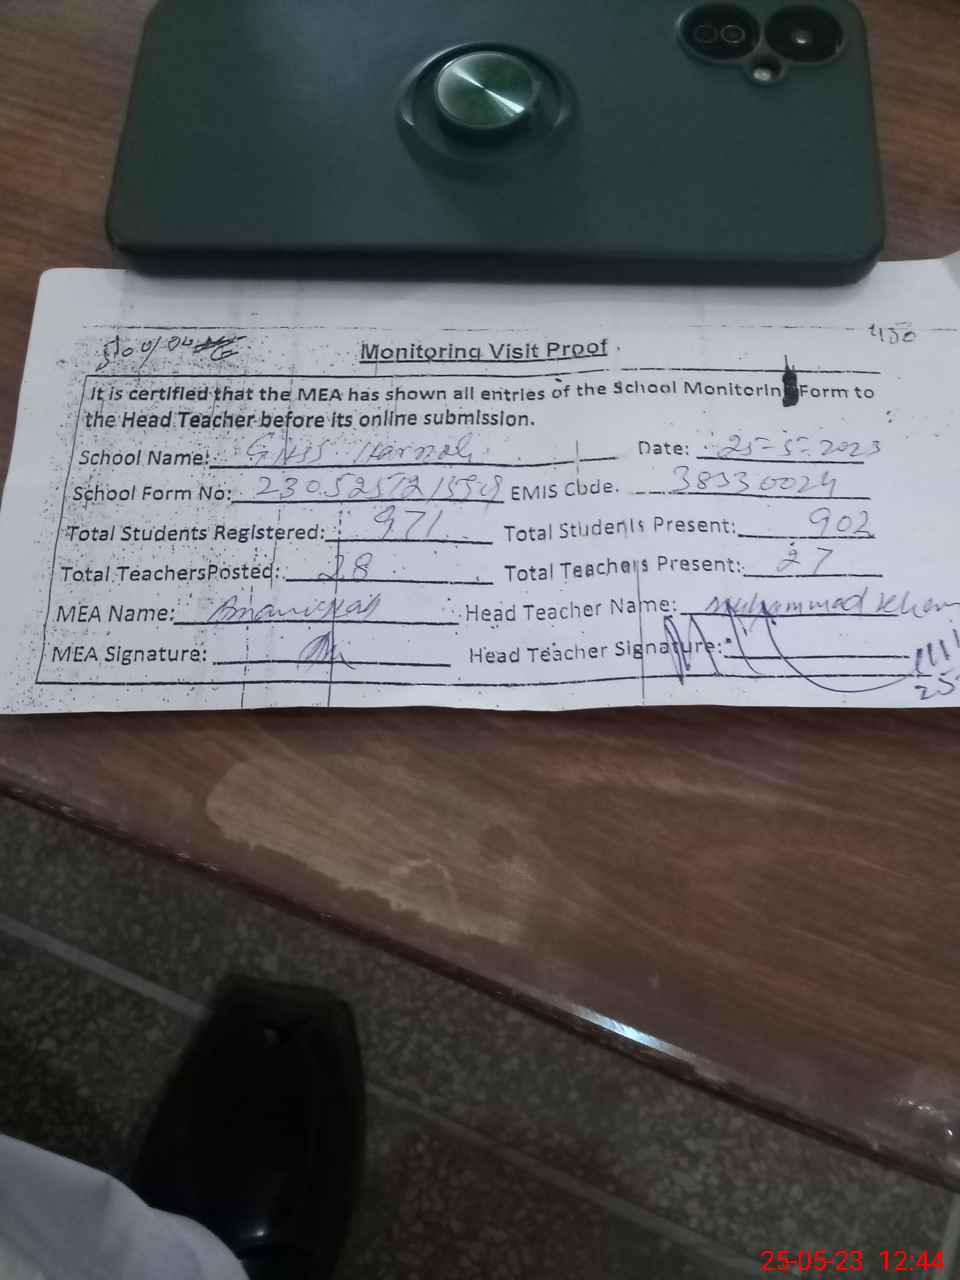 Monitoring Visit Proof
It is certified that the MEA has shown all entries of the School Monitorin Form to
the Head Teacher before its online submission.
School Name: GHSS Harnoli Date: 25-5-2023
School Form No: EMIS Code. 38330024
Total Students Registered: 971 Total Students Present: 902
Total TeachersPosted: 28 Total Teachers Present: 27
MEA Name: Head Teacher Name: Muhammad
MEA Signature: Head Teacher Signature:
25-05-23 12:44